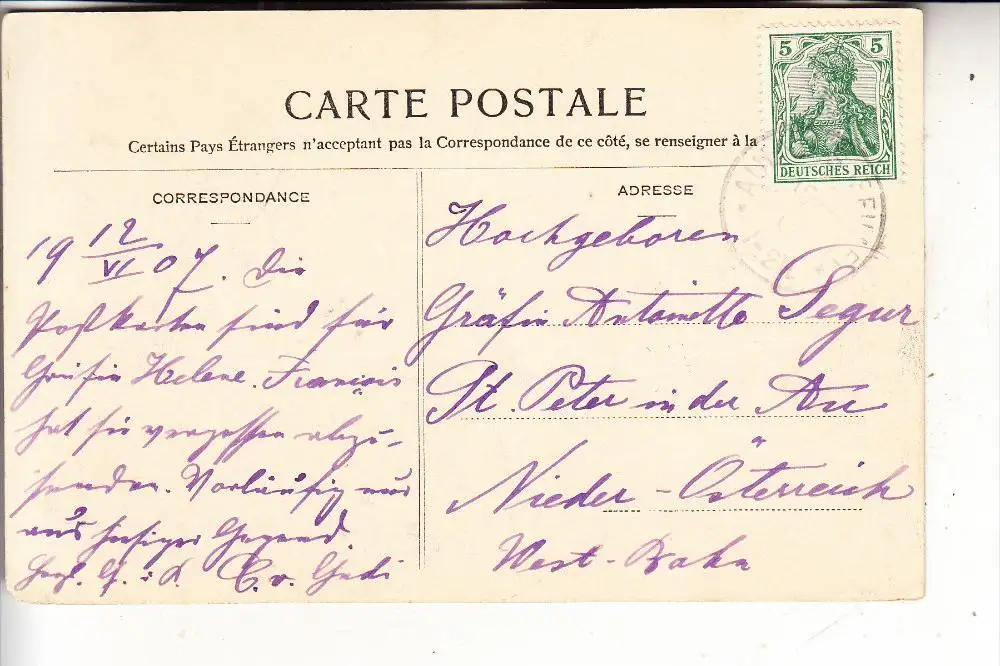 CARTE POSTALE
Certains Pays Étrangers n'acceptant pas la Correspondance de ce côté, se renseigner à la
5 5
DEUTSCHES REICH
CORRESPONDANCE
19 12/VI 07. Die
Postkarten sind für
Gräfin Helene. François
hat sie vergessen abzu-
senden. Vorläufig nur
aus hiesiger Gegend.
C. v.
ADRESSE
Hochgeboren
Gräfin Antoinette Segur
St. Peter in der Au
Nieder-Österreich
West-Bahn